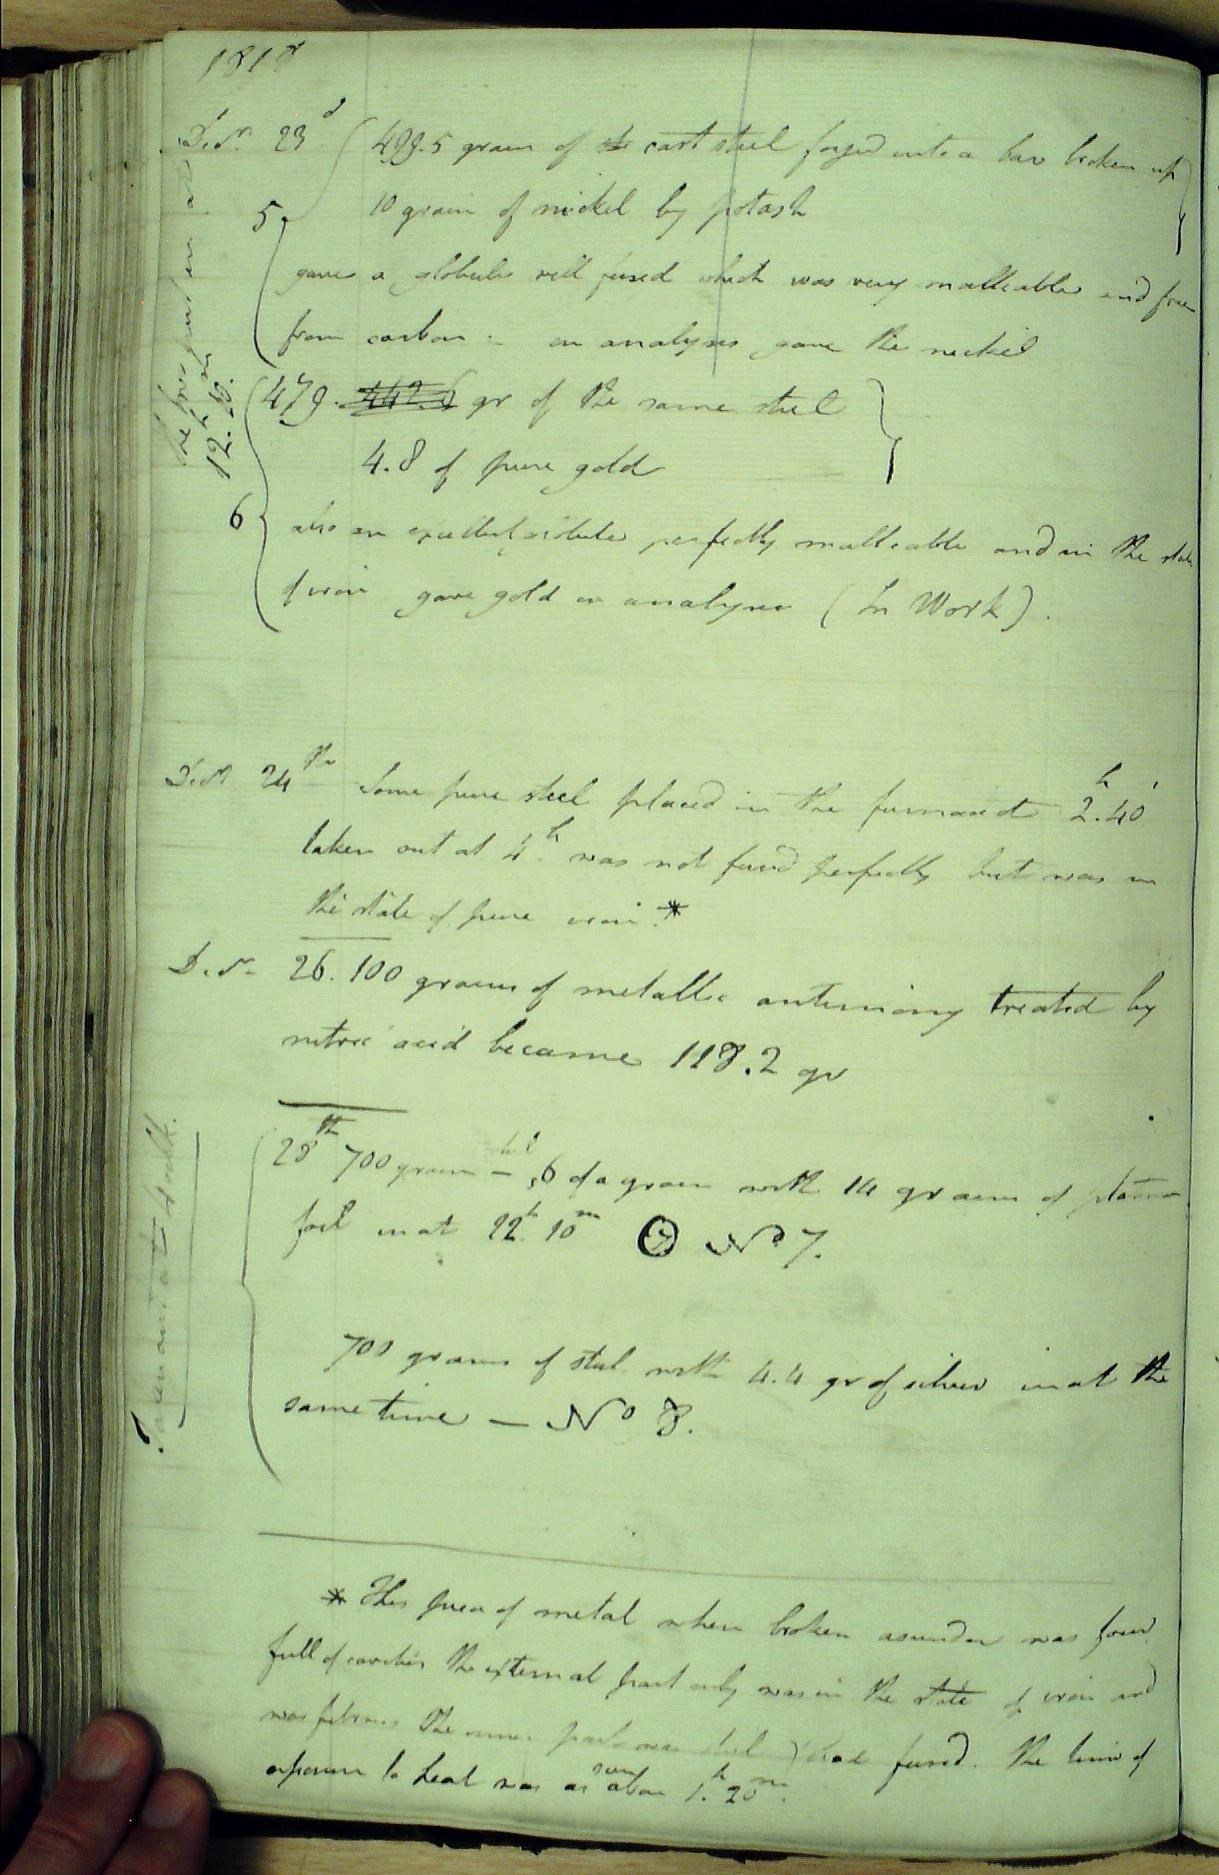 1818
Decr. 23d 499.5 grains of cast steel forged into a bar broken up
10 grain of nickel by potash
5
gave a globule well fused which was very malleable and free
from carbon - on analysis gave the nickel
479. 442.6 gr of the same steel
4.8 of pure gold
6
also an excellent globule perfectly malleable and in the state
of iron gave gold on analysis (In Work).
These were put in at
12.h 15.m
Decr 24th Some pure steel placed in the furnace at 2.h 40'
taken out at 4.h was not fused perfectly but was in
the state of pure iron.*
Decr. 26. 100 grains of metallic antimony treated by
nitric acid became 118.2 gr
28th 700 grains steel - ,6 of a grain with 14 grains of platina
foil in at 12h. 10m ⑦ No 7.
700 grains of steel with 4.4 gr of silver in at the
same time — No 8.
Taken out at 4 o'clk.
* This piece of metal when broken asunder was found
full of cavities the external part only was in the state of iron and
was fibrous the inner parts was steel fused. The time of
exposure to heat was as seen above 1.h 20m.